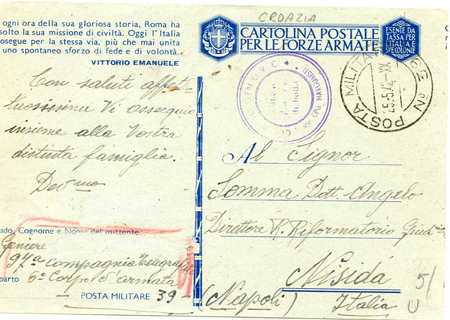 CROAZIA
ogni ora della sua gloriosa storia, Roma ha
solto la sua missione di civiltà. Oggi l'Italia
osegue per la stessa via, più che mai unita
uno spontaneo sforzo di fede e di volontà.
VITTORIO EMANUELE
CARTOLINA POSTALE
PER LE FORZE ARMATE
ESENTE DA
TASSA PER
L'ITALIA E
POSTA MILITARE
Con saluti affet-
tuosissimi Vi ossequio
insieme alla Vostra
distinta famiglia.
Dev mo
Al Signor
Somma Dott. Angelo
Direttore R. Riformatorio
Nisida
(Napoli) Italia
5/
U
ado, Cognome e Nome del mittente
Geniere
97a Compagnia
parto 6° Corpo d'armata
POSTA MILITARE 39